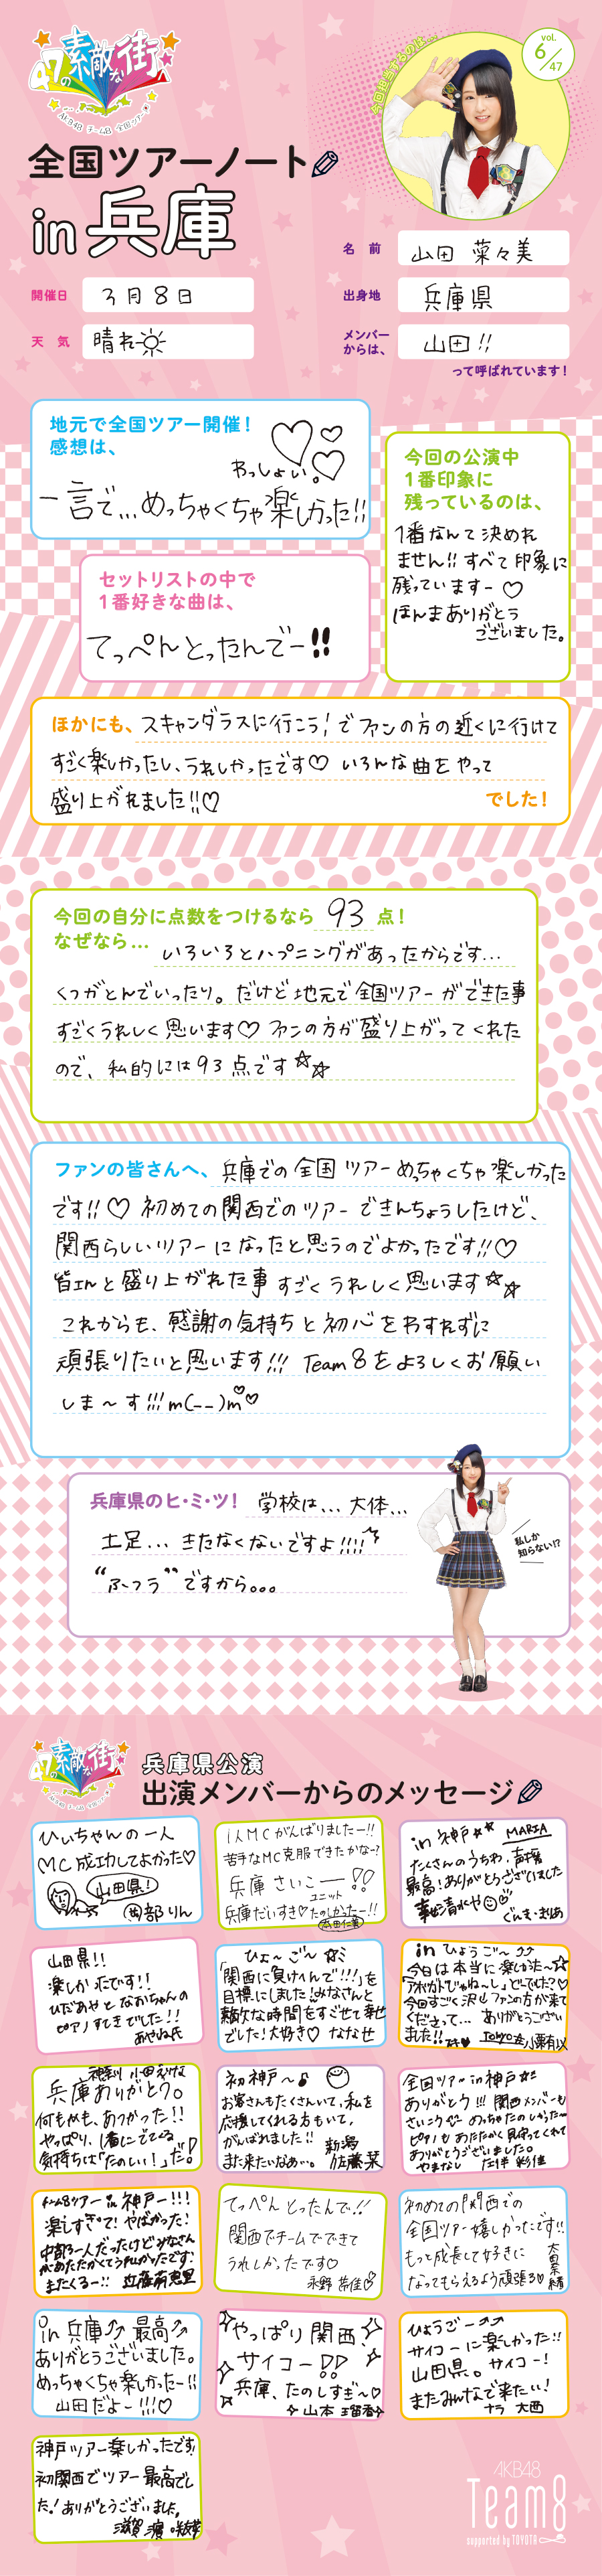 今回担当するのは…
VOL.
6/47
47の素敵な街へ
AKB48 チーム8 全国ツアー
全国ツアーノート
in 兵庫
名 前
山田 菜々美
開催日
3月8日
出身地
兵庫県
天 気
晴れ
メンバー
からは、
山田!!
って呼ばれています!
地元で全国ツアー開催!
感想は、
わっしょい。
一言で…めっちゃくちゃ楽しかった!!
今回の公演中
1番印象に
残っているのは、
1番なんて決めれ
ません!!すべて印象に
残っていますー♡
ほんまありがとう
ございました。
セットリストの中で
1番好きな曲は、
てっぺんとったんでー!!
ほかにも、スキャンダラスに行こう!でファンの方の近くに行けて
すごく楽しかったし、うれしかったです♡ いろんな曲をやって
盛り上がれました!!♡
でした!
今回の自分に点数をつけるなら 93 点!
なぜなら…
いろいろとハプニングがあったからです…
くつがとんでいったり。だけど地元で全国ツアーができた事
すごくうれしく思います♡ ファンの方が盛り上がってくれた
ので、私的には93点です☆☆
ファンの皆さんへ、兵庫での全国ツアーめっちゃくちゃ楽しかった
です!!♡ 初めての関西でのツアーできんちょうしたけど、
関西らしいツアーになったと思うのでよかったです!!♡
皆さんと盛り上がれた事すごくうれしく思います☆☆
これからも、感謝の気持ちと初心をわすれずに
頑張りたいと思います!!! Team8をよろしくお願い
しま〜す!!!m(_ _)m♡♡
兵庫県のヒ・ミ・ツ!
学校は…大体…
土足…きたなくないですよ!!!!
“ふつう”ですから。。。
私しか
知らない!?
47の素敵な街へ
AKB48 チーム8 全国ツアー
兵庫県公演
出演メンバーからのメッセージ
ひぃちゃんの一人
MC成功してよかった♡
山田県!
岡部りん
1人MCがんばりましたー!!
苦手なMC克服できたかなー?
兵庫さいこーー!!
ユニット
兵庫だいすき♡たのしかったー!!
in 神戸☆☆ MARIA
たくさんのうちわ、声援
最高!ありがとうございました
ぐんま・まりあ
山田県!!
楽しかったです!!
ひだあやとなおちゃんの
ピアノすてきでした!!
あやね氏
ひょ〜ご〜☆
「関西に負けへんで!!!」を
目標にしました!!みなさんと
素敵な時間をすごせて幸せ
でした!大好き♡ ななせ
in ひょうご〜
今日は本当に楽しか法〜☆
「アボガドじゃね〜し」どーでした?♡
今回すごく沢山ファンの方が来て
くださって… ありがとうござい
ました!! Tokyo 小栗有以
神奈川 小田えりな
兵庫ありがとう。
何もかも、あつかった!!
気持ちは「たのしい!」だ!
初神戸〜♪
お客さんもたくさんいて、私を
応援してくれる方もいて、
がんばれました!!
また来たいなぁ〜。
新潟
佐藤栞
全国ツアーin神戸☆
ありがとう!!! 関西メンバーも
さいこうだし めっちゃたのしかったー
ピアノもあたたかく見守ってくれて
ありがとうございました。
やまなし 左伴彩佳
チーム8ツアー in 神戸ー!!!
楽しすぎて! やばかった!
中部3一人だったけどみなさん
があたたかくてうれしかったです
またくるー!! 近藤萌恵里
てっぺんとったんで!!
関西でチームでできて
うれしかったです♡
永野芹佳
初めての関西での
全国ツアー嬉しかったです!!
もっと成長して好きに
なってもらえるよう頑張る♡
太田奈緒
in 兵庫 最高
ありがとうございました。
めっちゃくちゃ楽しかったー!!
山田だよー!!!♡
やっぱり関西、
サイコー!!
兵庫、たのしすぎ〜♡
山本瑠香
ひょうごー
サイコーに楽しかった!!
山田県。サイコー!
またみんなで来たい!
ナラ 大西
神戸ツアー楽しかったです!!
初関西でツアー最高でし
た!ありがとうございました。
滋賀 濵咲友菜
AKB48
Team8
supported by TOYOTA